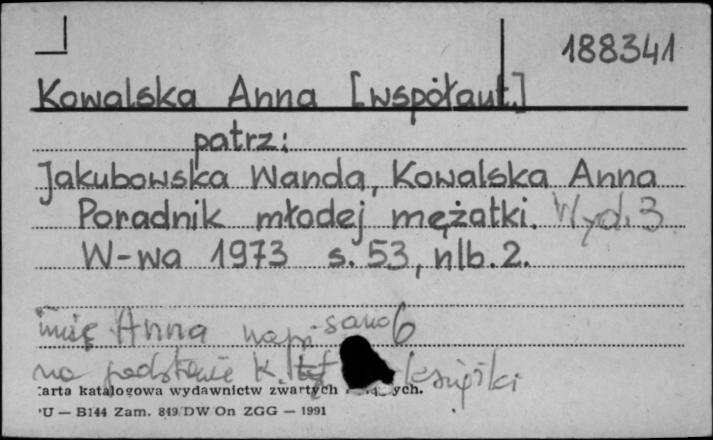 188341
Kowalska Anna [współaut.]
patrz:
Jakubowska Wanda, Kowalska Anna
Poradnik młodej mężatki. Wyd. 3
W-wa 1973 s. 53, nlb. 2.
imię Anna napisano
na podstawie K. tyt książki
arta katalogowa wydawnictw zwartych ych.
U — B144 Zam. 849/DW On ZGG — 1991